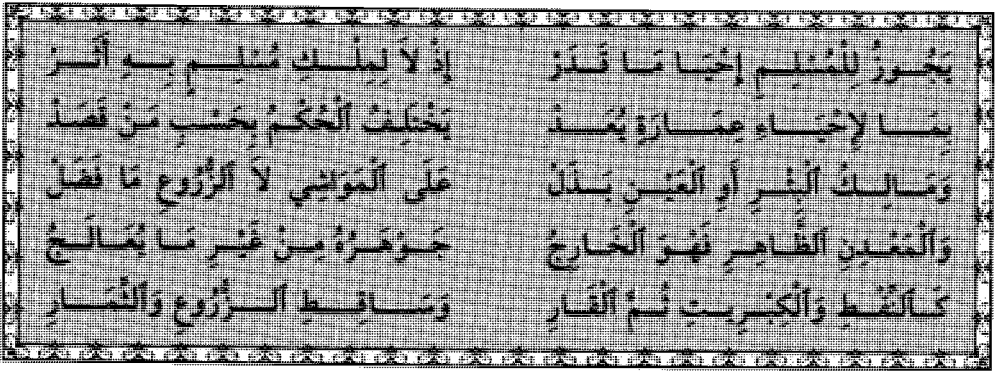 يَجُوزُ لِلْمُسْلِمِ إِحْيَا مَا قَدَرْ إِذْ لَا لِمِلْكِ مُسْلِمٍ بِهِ أَثَرْ
بِمَا لِإِحْيَاءِ عِمَارَةٍ يُعَدْ يَخْتَلِفُ ٱلْحُكْمُ بِحَسْبِ مَنْ قَصَدْ
وَمَالِكُ ٱلْبِئْرِ أَوِ ٱلْعَيْنِ بَذَلْ عَلَى ٱلْمَوَاشِي لَا ٱلزُّرُوعِ مَا فَضَلْ
وَٱلْمَعْدِنِ ٱلظَّاهِرِ فَهْوَ ٱلْخَارِجُ جَوْهَرُهُ مِنْ غَيْرِ مَا يُعَالَجُ
كَٱلنِّفْطِ وَٱلْكِبْرِيتِ ثُمَّ ٱلْقَارِ وَسَاقِطِ ٱلزُّرُوعِ وَٱلثِّمَارِ